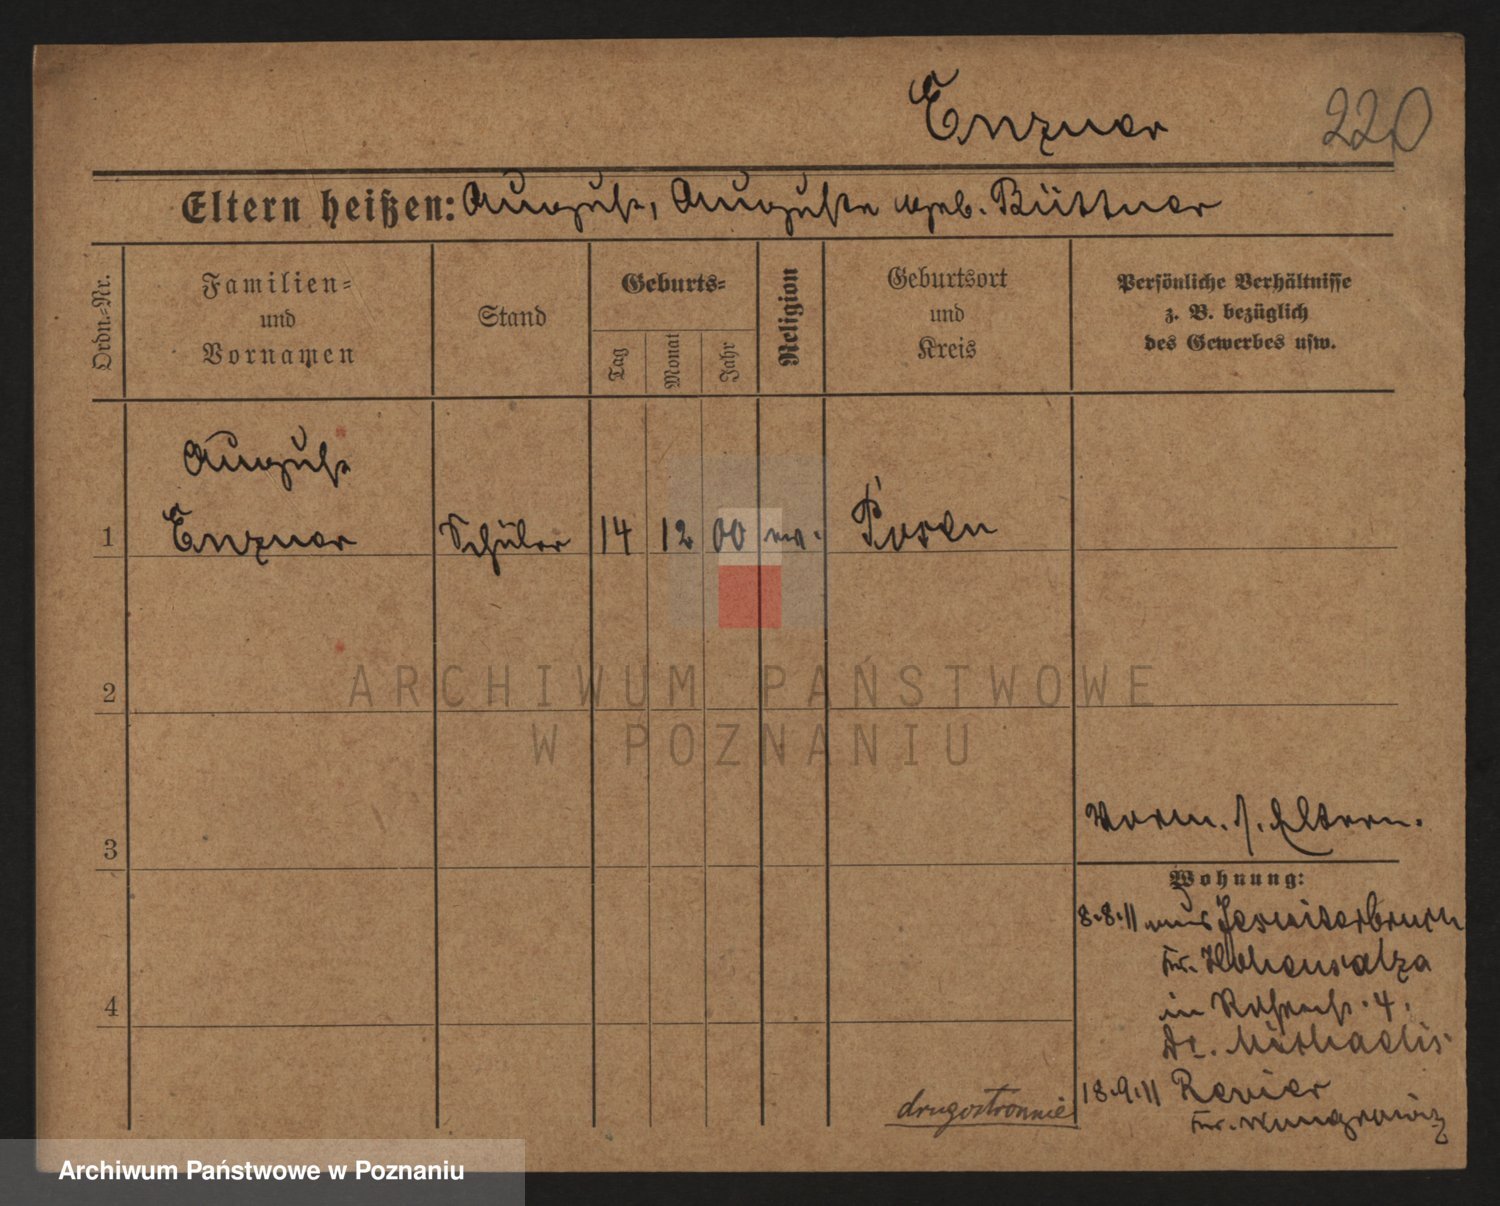 Enzner 220
Eltern heißen: August, Auguste geb. Büttner
Ordn.-Nr.
Familien-
und
Vornamen
Stand
Geburts-
Tag
Monat
Jahr
Religion
Geburtsort
und
Kreis
Persönliche Verhältnisse
z. B. bezüglich
des Gewerbes usw.
August
1 Enzner Schüler 14 12 00 ev. Posen
2
3
Vorm. s. Eltern.
Wohnung:
8.8.11 aus Jesuiterbruch
Kr. Hohensalza
4
in 4.
Dr. Michaelis
18.9.11 Revier
Kr. Wongrowitz
drugostronnie
ARCHIWUM PAŃSTWOWE
W POZNANIU
Archiwum Państwowe w Poznaniu